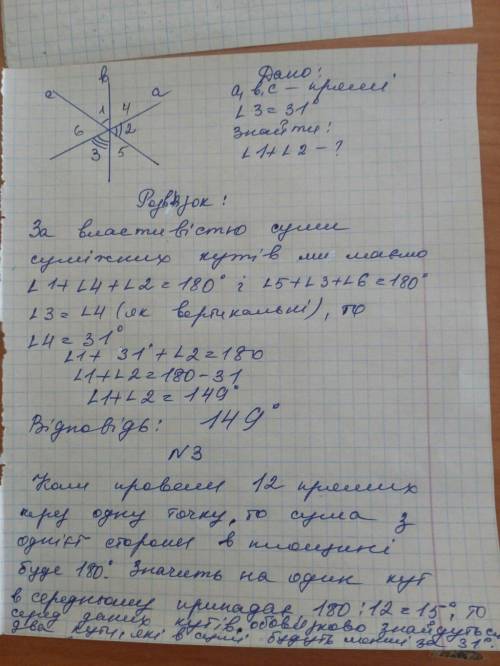 в
с а
1 4
6 2
3 5
Дано:
а, в, с – прямі
∠3 = 31°
Знайти:
∠1+∠2 – ?
Розв'язок:
За властивістю суми
суміжних кутів ми маємо
∠1+∠4+∠2=180° і ∠5+∠3+∠6=180°
∠3=∠4 (як вертикальні), то
∠4=31°
∠1+31°+∠2=180
∠1+∠2=180-31
∠1+∠2=149°
Відповідь: 149°
N3
Коли провели 12 прямих
через одну точку, то сума з
однієї сторони в площині
буде 180°. Значить на один кут
в середньому припадає 180:12=15°, то
серед даних кутів обов'язково знайдуться
два кути, які в сумі будуть менші за 31°.